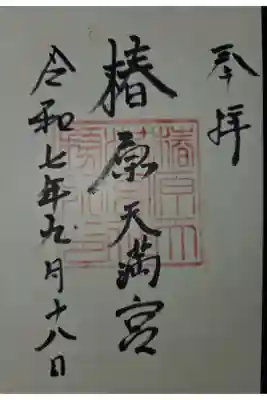 奉拝
椿原天満宮
令和七年九月十八日